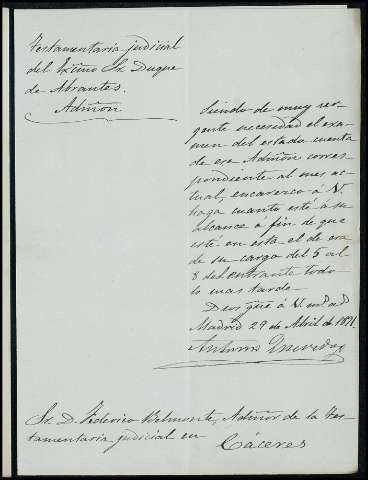 Testamentaria judicial
del Excmo Sr. Duque
de Abrantes.
Admon
Siendo de muy ur-
gente necesidad el exa-
men del estado cuenta
de esa Admon corres-
pondiente al mes ac-
tual, encarezco á V.
haga cuanto esté á su
alcance á fin de que
esté en esta el de esa
de su cargo del 5 al
8 del entrante todo
lo mas tarde.
Dios gue á V. ms. as.
Madrid 29 de Abril de 1871.
Antonio
Sr. D. Federico Belmonte, Admor de la Tes-
tamentaria judicial en
Cáceres